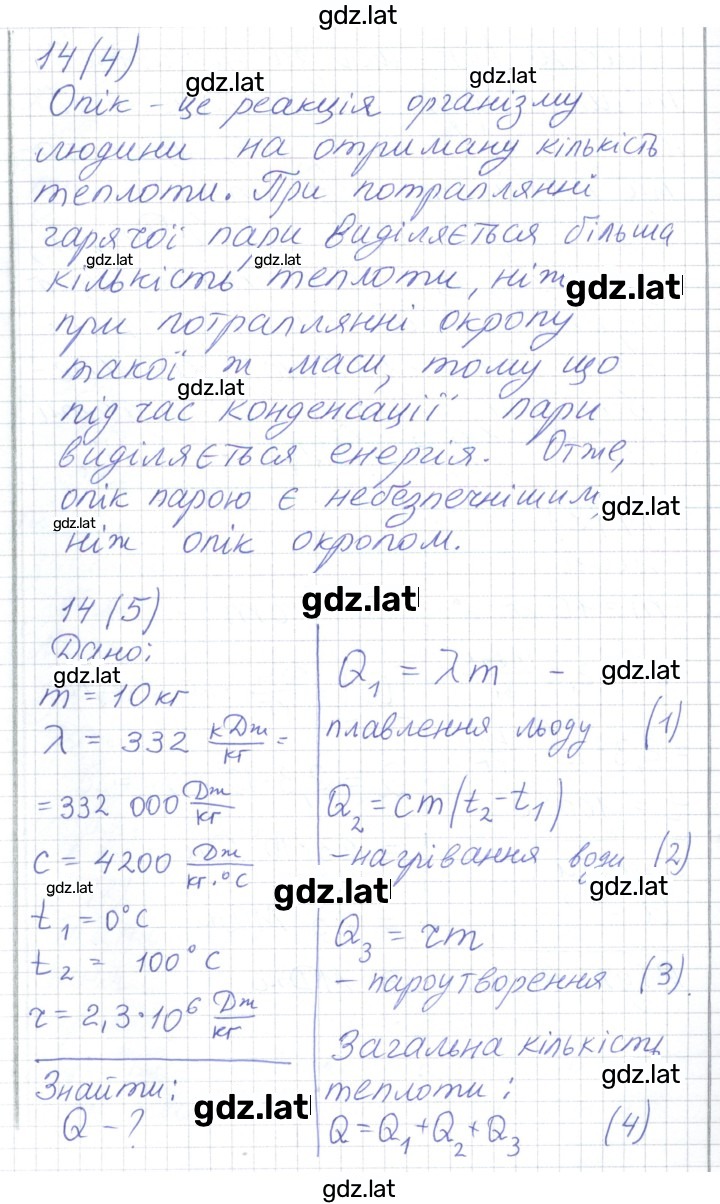 gdz.lat
14(4)
gdz.lat
gdz.lat
Опік - це реакція організму
людини на отриману кількість
теплоти. При потраплянні
гарячої пари виділяється більша
gdz.lat
gdz.lat
кількість теплоти, ніж
gdz.lat
при потраплянні окропу
такої ж маси, тому що
gdz.lat
під час конденсації пари
виділяється енергія. Отже,
опік парою є небезпечнішим,
gdz.lat
gdz.lat
ніж опік окропом.
gdz.lat
14(5)
Дано:
gdz.lat
m = 10 кг
λ = 332 кДж/кг =
= 332 000 Дж/кг
c = 4200 Дж/кг·°C
gdz.lat
t₁ = 0°C
t₂ = 100°C
r = 2,3·10⁶ Дж/кг
Знайти:
gdz.lat
Q - ?
Q₁ = λm -
gdz.lat
плавлення льоду (1)
Q₂ = cm(t₂-t₁)
- нагрівання води (2)
gdz.lat
gdz.lat
Q₃ = rm
- пароутворення (3)
Загальна кількість
gdz.lat
теплоти:
Q = Q₁ + Q₂ + Q₃ (4)
gdz.lat